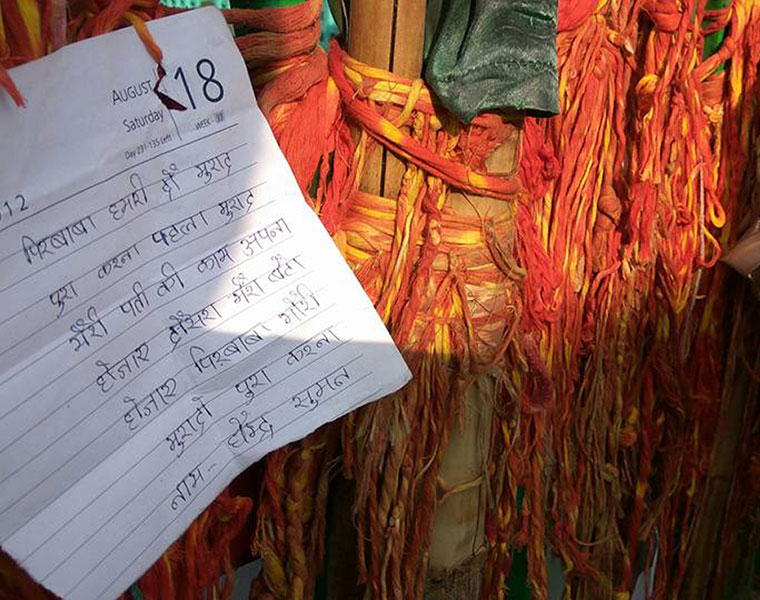 AUGUST 18
Saturday
WEEK - 33
Day 231-135 Left
012
पिरबाबा हमारी दौं मुराद
पुरा करना पहला मुराद
मेंरी पती की काम अपना
होजाए दोंसरा मेंरा बेंटा
होजाए पिरबाबा मोंरी
मुरादो पुरा करना
नाम - हेमेंद्र सुमन